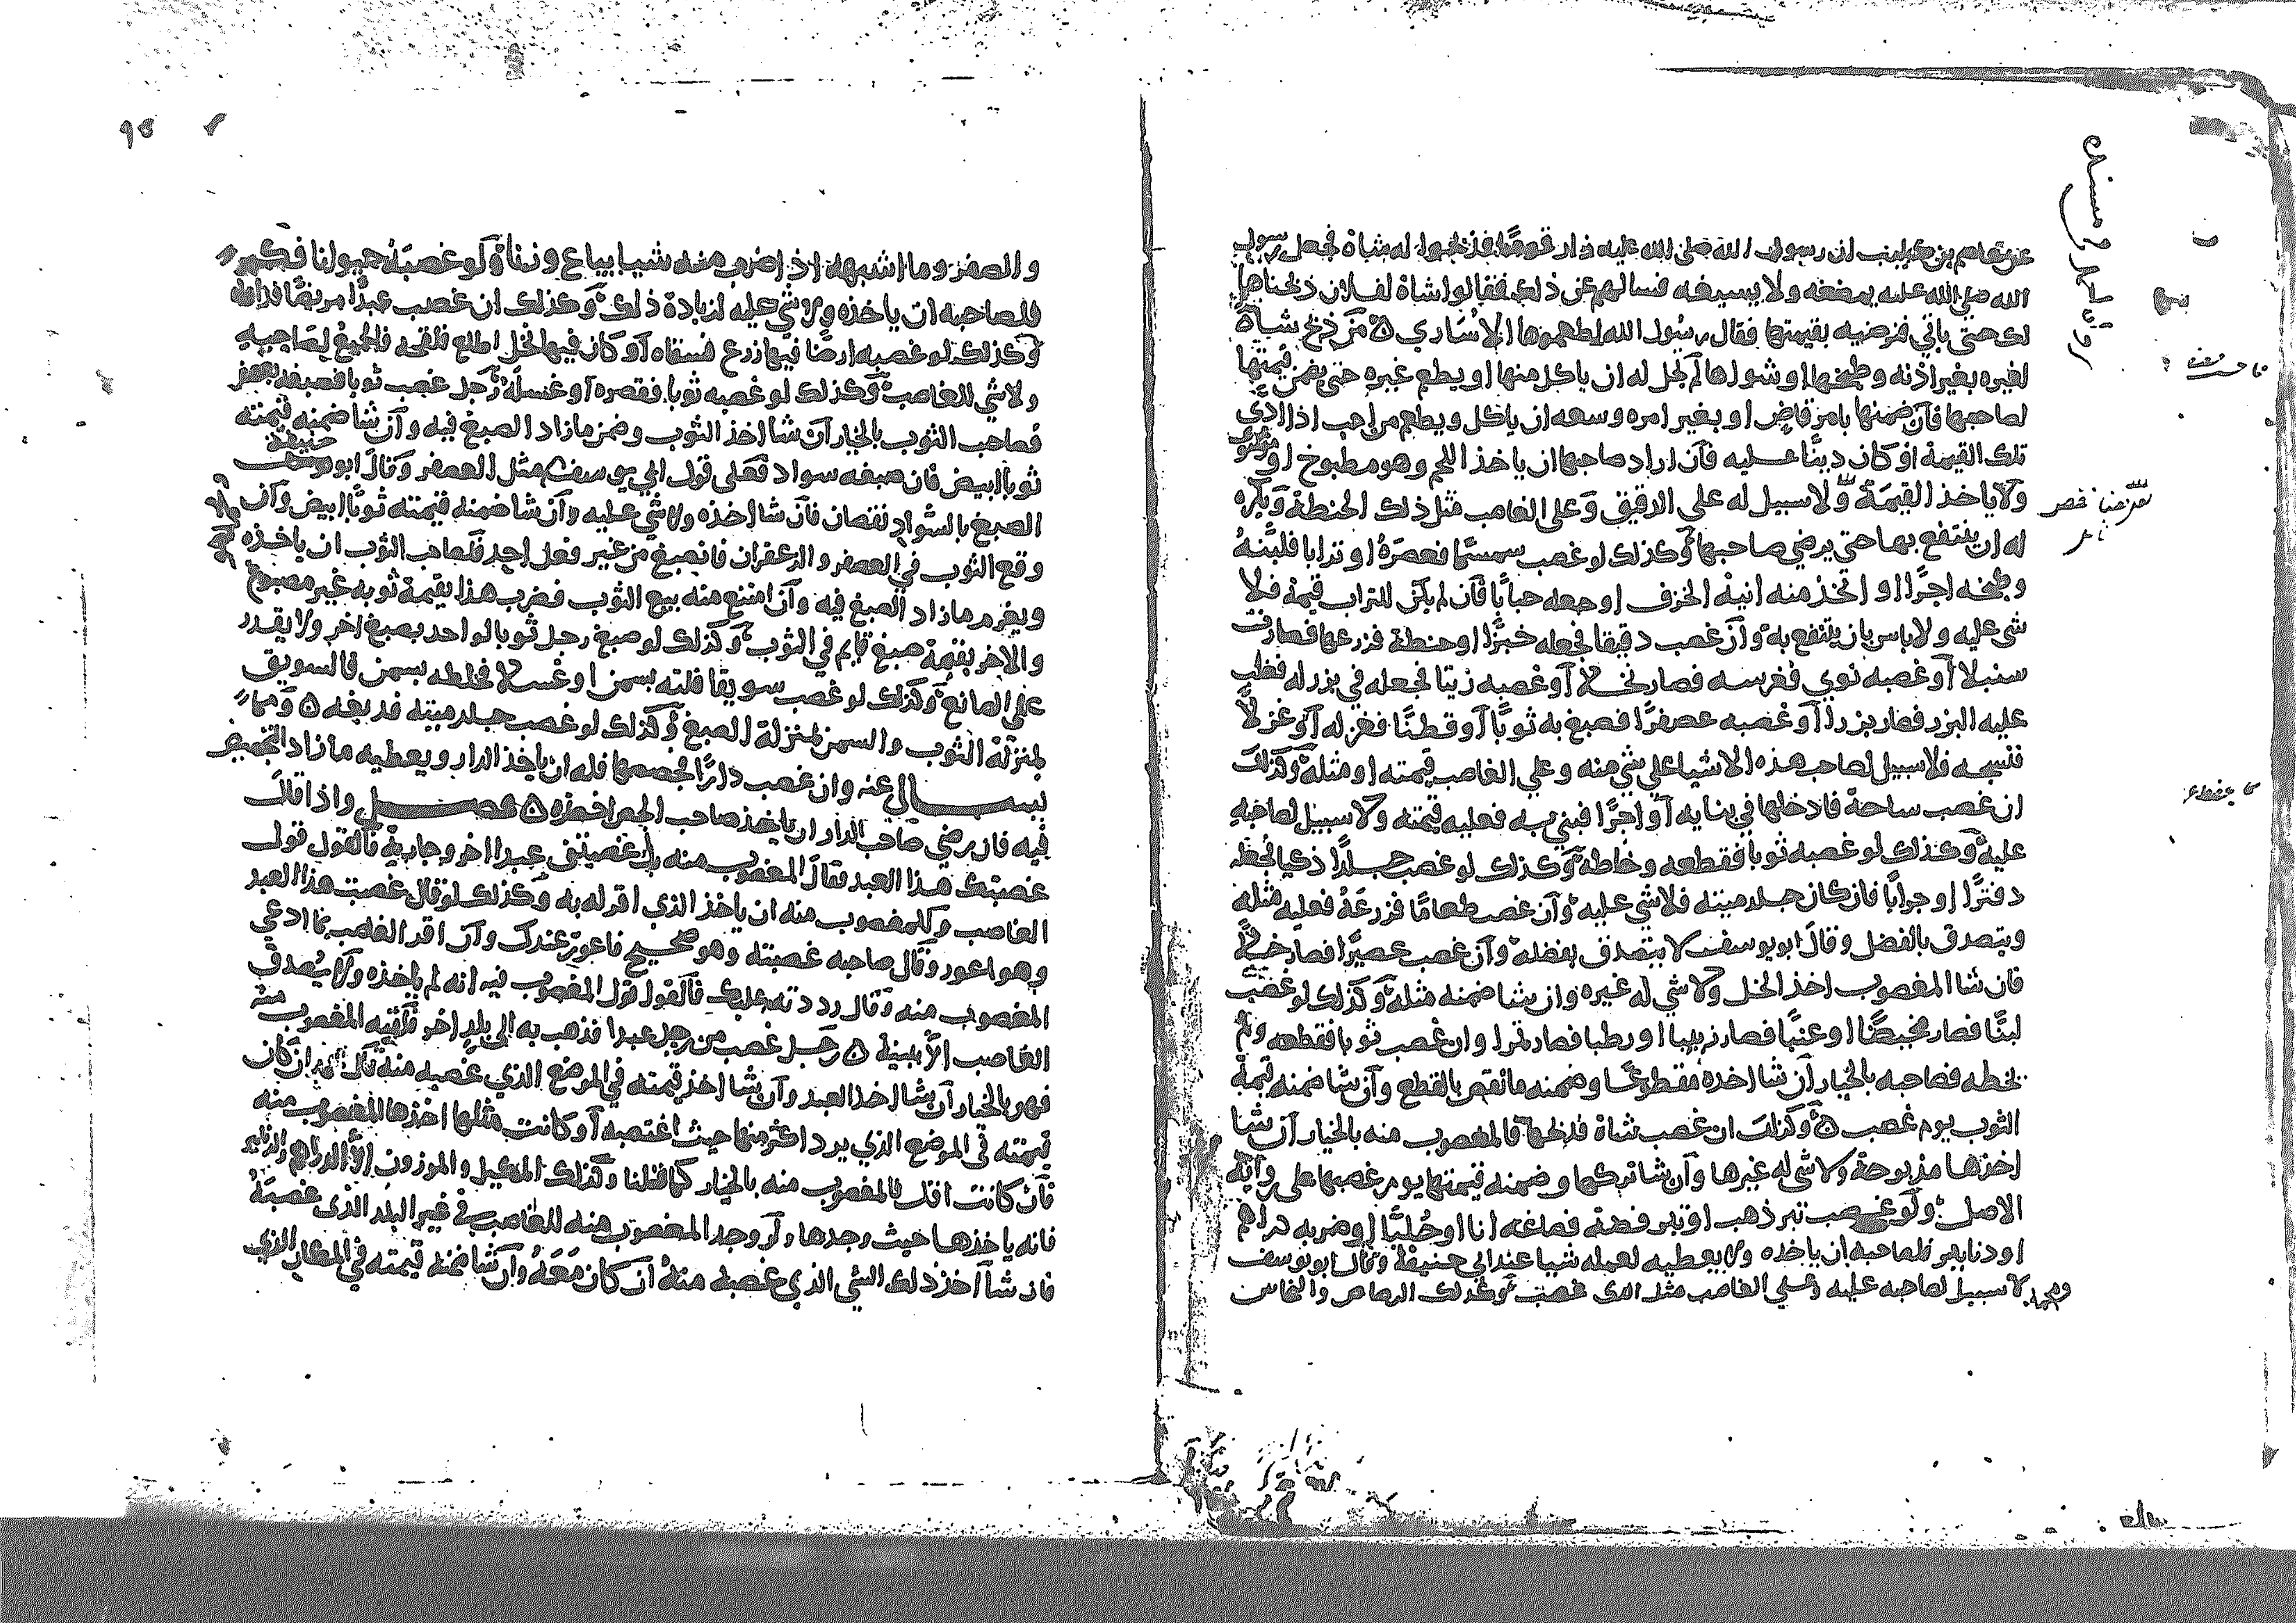 عن عاصم بن كليب ان رسول الله صلى الله عليه زار قوما فذبحوا له شاة فجعل رسول
الله صلى الله عليه يمضغه ولا يسيغه فسالهم عن ذلك فقالوا شاة لفلان ذبحناها
لك حتى ياتي فنرضيه بقيمتها فقال رسول الله اطعموها الاساري ۵ من ذبح شاة
لغيره بغير اذنه وطبخها او شواها لم يحل له ان ياكل منها او يطعم غيره حتى يضمن قيمتها
لصاحبها فان ضمنها بامر قاض او بغير امره وسعه ان ياكل ويطعم من احب اذا ادي
تلك القيمة او كان دينا عليه فان اراد صاحبها ان ياخذ اللحم وهو مطبوخ او مشوي
ولا ياخذ القيمة ولا سبيل له على الدقيق وعلى الغاصب مثل ذلك الحنطة ويكره
له ان ينتفع بها حتى يرضي صاحبها وكذلك لو غصب سمسما فعصره او ترابا فلبنه
وطبخه اجرا او اتخذ منه انية الخزف او جعله حبابا فان لم يكن للتراب قيمة فلا
شي عليه ولا باس بان ينتفع به وان غصب دقيقا فجعله خبزا او حنطة فزرعها فصارت
سنبلا او غصبه نوي فغرسه فصار نخلا او غصبه زيتا فجعله في بزر له فغلب
عليه البزر فصار بزرا او غصبه عصفرا فصبغ به ثوبا او قطنا فغزله او غزلا
فنسجه فلا سبيل لصاحب هذه الاشيا على شي منه وعلى الغاصب قيمته او مثله وكذلك
ان غصب ساحة فادخلها في بنايه او اجرا فبني به فعليه قيمته ولا سبيل لصاحبه
عليه وكذلك لو غصبه ثوبا فقطعه وخاطه وكذلك لو غصب جلدا ذكيا فجعله
دفترا او جرابا فان كان جلد ميتة فلا شي عليه وان غصب طعاما فزرعه فعليه مثله
ويتصدق بالفضل وقال ابو يوسف لا يتصدق بفضله وان غصب عصيرا فصار خلا
فان شا المغصوب اخذ الخل ولا شي له غيره وان شا ضمنه مثله وكذلك لو غصب
لبنا فصار مخيضا او عنبا فصار زبيبا او رطبا فصار تمرا وان غصب ثوبا فقطعه ولم
يخطه فصاحبه بالخيار ان شا اخذه مقطوعا وضمنه ما نقص بالقطع وان شا ضمنه قيمة
الثوب يوم غصب ۵ وكذلك ان غصب شاة فذبحها فالمغصوب منه بالخيار ان شا
اخذها مذبوحة ولا شي له غيرها وان شا تركها وضمنه قيمتها يوم غصبها على رواية
الاصل ولو غصب تبر ذهب او تبر فضة فصاغه انا او حليا او ضربه دراهم
او دنانير فلصاحبه ان ياخذه ولا يعطيه لعمله شيا عند ابي حنيفة وقال ابو يوسف
ومحمد لا سبيل لصاحبه عليه وعلى الغاصب مثل الذي غصب وكذلك الرصاص والنحاس
٩٥
والصفر وما اشبهه اذا ضرب منه شيا يباع وزنا ولو غصبه حيوانا فكبر
فلصاحبه ان ياخذه ولا شي عليه لزيادة ذلك وكذلك ان غصب عبدا مريضا فداواه
وكذلك لو غصبه ارضا فيها زرع فسقاه او كان فيها نخل اطلع فلقحه فالجميع لصاحبه
ولا شي للغاصب وكذلك لو غصبه ثوبا فقصره او غسله رجل غصب ثوبا فصبغه بعصفر
فصاحب الثوب بالخيار ان شا اخذ الثوب وضمن ما زاد الصبغ فيه وان شا ضمنه قيمته
ثوبا ابيض فان صبغه سواد فعلى قول ابي يوسف مثل العصفر وقال ابو حنيفة
الصبغ بالسواد نقصان فان شا اخذه ولا شي عليه وان شا ضمنه قيمته ثوبا ابيض وان
وقع الثوب في العصفر والزعفران فانصبغ من غير فعل احد فلصاحب الثوب ان ياخذه
ويغرم ما زاد الصبغ فيه وان امتنع منه بيع الثوب فضرب هذا بقيمة ثوبه غير مصبوغ
والاخر بقيمة صبغ قايم في الثوب وكذلك لو صبغ رجل ثوبا لواحد بصبغ اخر ولا يقدر
على الصانع وكذلك لو غصب سويقا فلته بسمن او عسلا فخلطه بسمن فالسويق
بمنزلة الثوب والسمن بمنزلة الصبغ وكذلك لو غصب جلد ميتة فدبغه ۵ ومما
يسالي عنه وان غصب دارا فجصصها فله ان ياخذ الدار ويعطيه ما زاد التجصيص
فيه فان رضي صاحب الدار ان ياخذ صاحب الجص اخذه ۵ فصل واذا قال
غصبتك هذا العبد فقال المغصوب منه بل غصبتني عبدا اخر وجارية فالقول قول
الغاصب وللمغصوب منه ان ياخذ الذي اقر له به وكذلك لو قال غصبت هذا العبد
وهو اعور وقال صاحبه غصبته وهو صحيح فاعور عندك وان اقر الغاصب بما ادعي
المغصوب منه وقال رددته عليك فالقول قول المغصوب فيه انه لم ياخذه ولا يصدق
الغاصب الا ببينة ۵ رجل غصب من رجل عبدا فذهب به الى بلد اخر فلقيه المغصوب منه
فهو بالخيار ان شا اخذ العبد وان شا اخذ قيمته في الموضع الذي غصبه منه ان كان
قيمته في الموضع الذي يرد اكثر منها حيث اغتصبه او كانت مثلها اخذها المغصوب منه
فان كانت اقل فالمغصوب منه بالخيار كما قلنا وكذلك المكيل والموزون الا الدراهم والدنانير
فانه ياخذها حيث وجدها ولو وجد المغصوب منه للغاصب في غير البلد الذي غصبه
فان شا اخذ ذلك الشي الذي غصبه منه ان كان معه وان شا ضمنه قيمته في المكان الذي